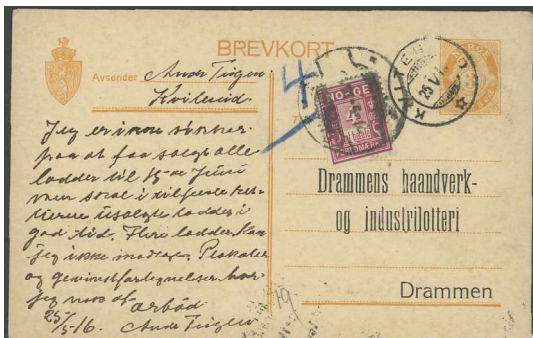 BREVKORT
Avsender Ande Tingen
Kviterud
Jeg er ikke sikker
paa at faa solgt alle
lodder til 15de Juni
men skal i tilfælde
usolgte lodder i
god tid. Flere lodder kan
jeg ikke modtage. Plakater
og gevinstfortegnelser har
jeg nok af
25/5-16. ærbød
Ande
4
NORGE
4
PORTOMÆRKE
KVITE
25 V 1
NORGE
Drammens haandverk-
og industrilotteri
Drammen
19